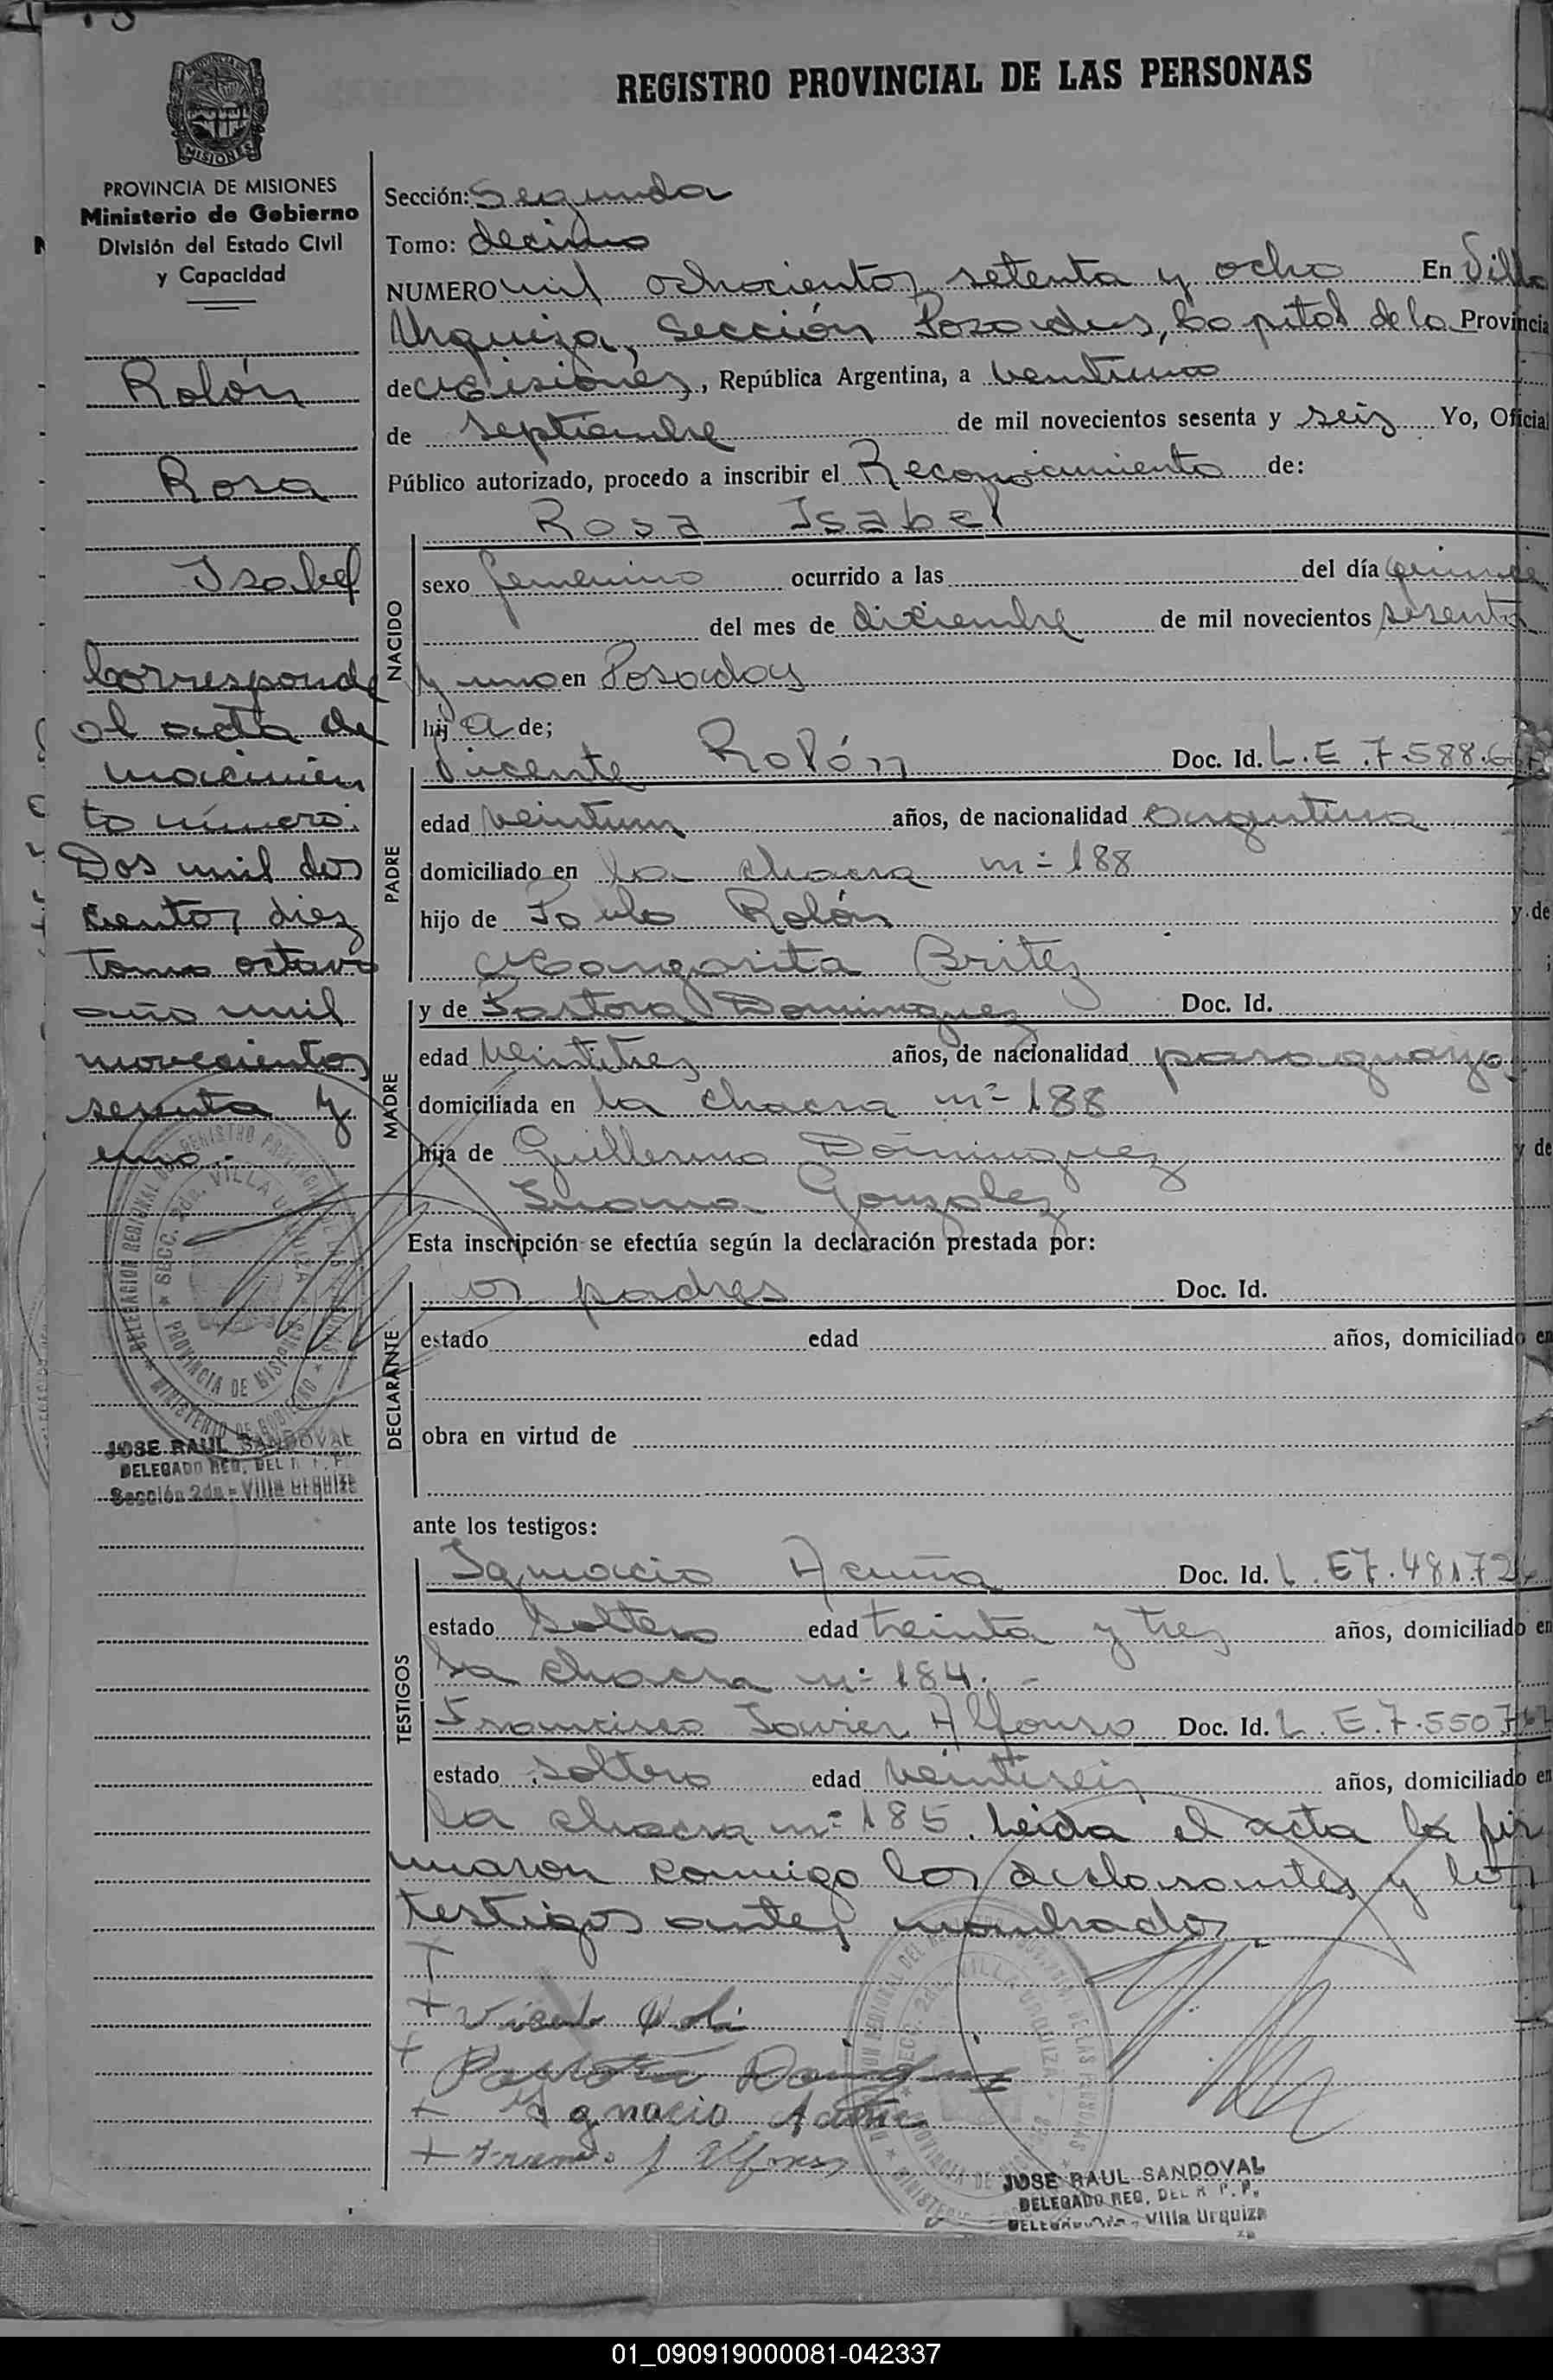 REGISTRO PROVINCIAL DE LAS PERSONAS
MISIONES
PROVINCIA DE MISIONES
Ministerio de Gobierno
División del Estado Civil
y Capacidad
Rolón
Rosa
Isabel
Corresponde
al acta de
nacimien
to número:
Dos mil dos
cientos diez
tomo octavo
año mil
novecientos
sesenta y
uno.-
JOSE RAUL SANDOVAL
DELEGADO REG. DEL R. P. P.
Sección 2da - Villa Urquiza
Sección: Segunda
Tomo: decimo
NUMERO mil ochocientos setenta y ocho En Villa
Urquiza, Sección Posadas, Capital de la Provincia
de Misiones, República Argentina, a veintiuno
de septiembre de mil novecientos sesenta y seis Yo, Oficial
Público autorizado, procedo a inscribir el Reconocimiento de:
Rosa Isabel
NACIDO
sexo femenino ocurrido a las del día quince
del mes de diciembre de mil novecientos sesenta
y uno en Posadas
hij a de;
PADRE
Vicente Rolón Doc. Id. L.E.7.588.6
edad veintiun años, de nacionalidad argentina
domiciliado en la chacra nº 188
hijo de Paulo Rolón y de
Margarita Britez
MADRE
y de Pastora Dominguez Doc. Id.
edad veintitres años, de nacionalidad paraguaya
domiciliada en la chacra nº 188
hija de Guillermo Dominguez y de
Juana Gonzalez
Esta inscripción se efectúa según la declaración prestada por:
DECLARANTE
os padres Doc. Id.
estado edad años, domiciliado en
obra en virtud de
ante los testigos:
TESTIGOS
Ignacio Acuña Doc. Id. L.E7.481.72
estado soltero edad treinta y tres años, domiciliado en
la chacra nº 184.-
Francisco Javier Alfonso Doc. Id. L.E.7.550.7
estado soltero edad veintiseis años, domiciliado en
la chacra nº 185. Leida el acta la fir
maron conmigo los declarantes y los
testigos antes nombrados
+ Vicente
+ Pastora
+ Ignacio Acuña
+ J Alfonso
JOSE RAUL SANDOVAL
DELEGADO REG. DEL R. P. P.
Villa Urquiza
01_090919000081-042337